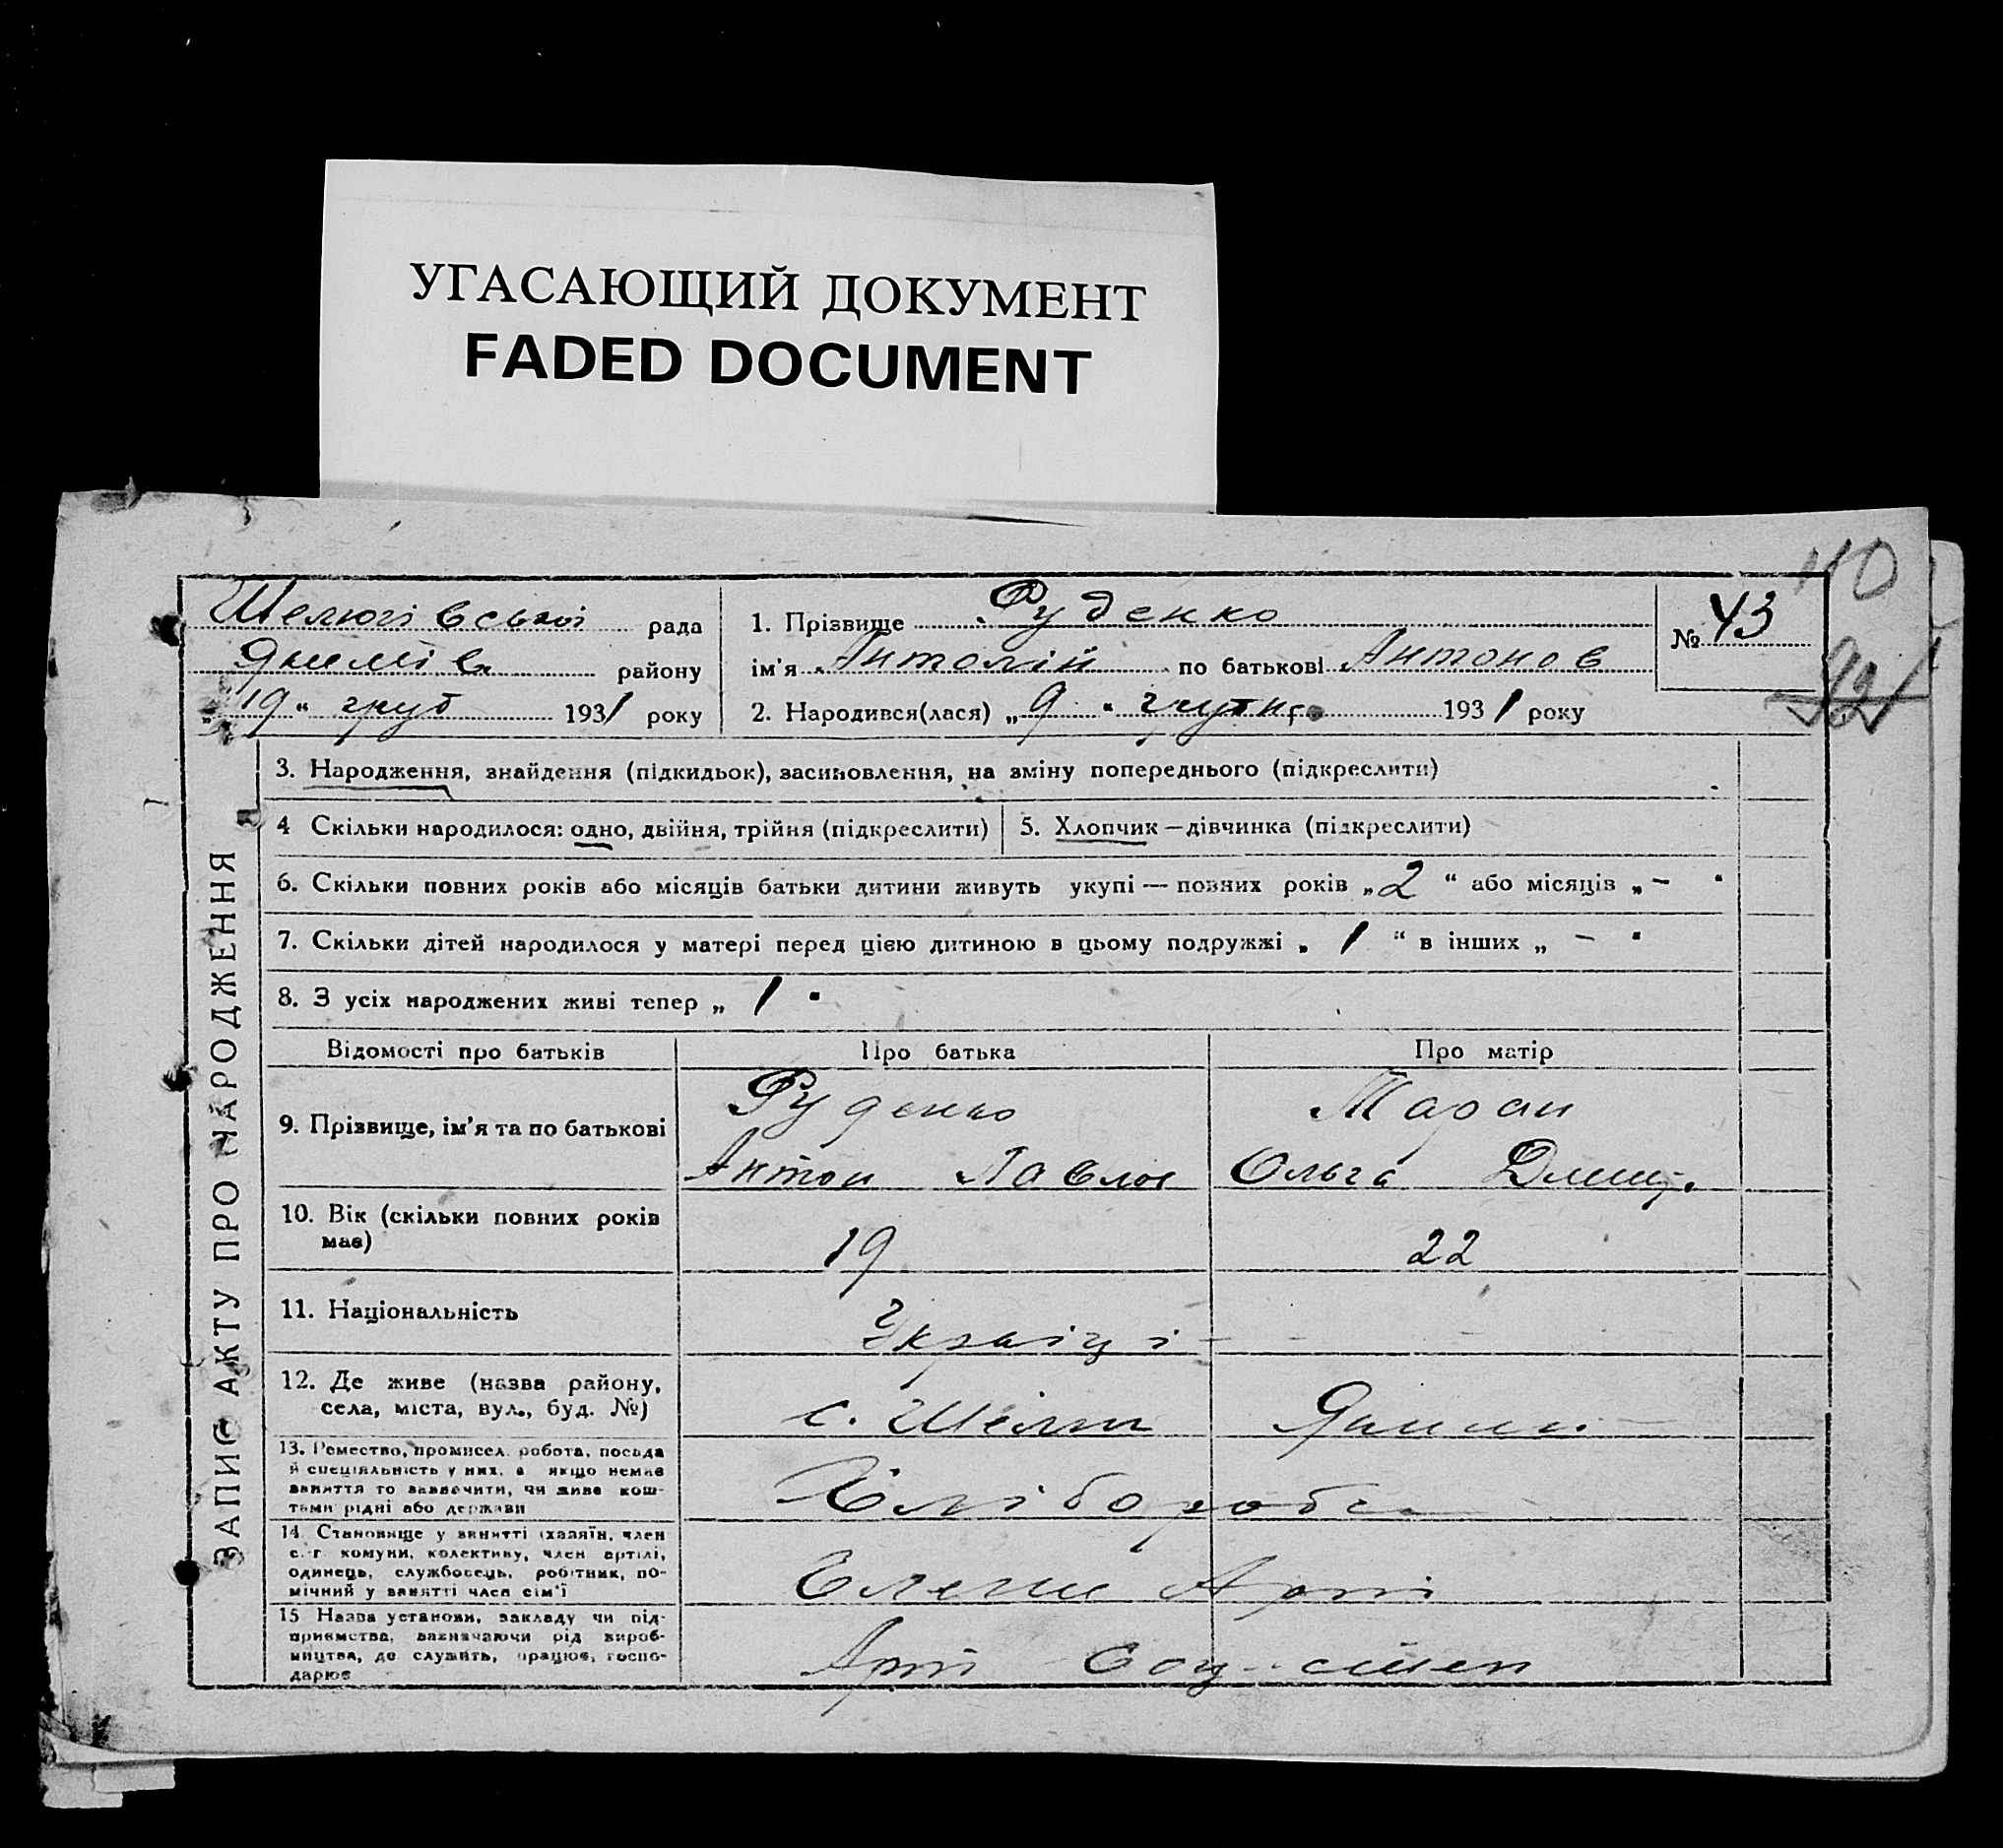 УГАСАЮЩИЙ ДОКУМЕНТ
FADED DOCUMENT
110
Шелюгівської рада
Якимів. району
„19“ груд 1931 року
1. Прізвище Руденко
ім'я Антолій по батькові Антонов
2. Народився(лася) „9“ грудня 1931 року
№ 43
ЗАПИС АКТУ ПРО НАРОДЖЕННЯ
3. Народження, знайдення (підкидьок), засиновлення, на зміну попереднього (підкреслити)
4 Скільки народилося: одно, двійня, трійня (підкреслити)
5. Хлопчик — дівчинка (підкреслити)
6. Скільки повних років або місяців батьки дитини живуть укупі — повних років „2“ або місяців „–“
7. Скільки дітей народилося у матері перед цією дитиною в цьому подружжі „1“ в інших „–“
8. З усіх народжених живі тепер „1“
Відомості про батьків Про батька Про матір
9. Прізвище, ім'я та по батькові
Руденко
Антон Павлов
Ольга Дмит.
10. Вік (скільки повних років
має)
19 22
11. Національність
Україці
12. Де живе (назва району,
села, міста, вул., буд. №)
с. Шелюг Яким.
13. Ремество, промисел, робота, посада
й спеціяльність у них, а якщо немає
заняття то зазначити, чи живе кош-
тами рідні або держави
Хлібороби
14. Становище у занятті (хазяїн, член
с.-г. комуни, колективу, член артілі,
одинець, службовець, робітник, по-
мічний у занятті член сім'ї
Члени Арті
15 Назва установи, закладу чи під-
приємства, зазначаючи рід вироб-
ництва, де служить, працює, госпо-
дарює
Арті Соц. степ